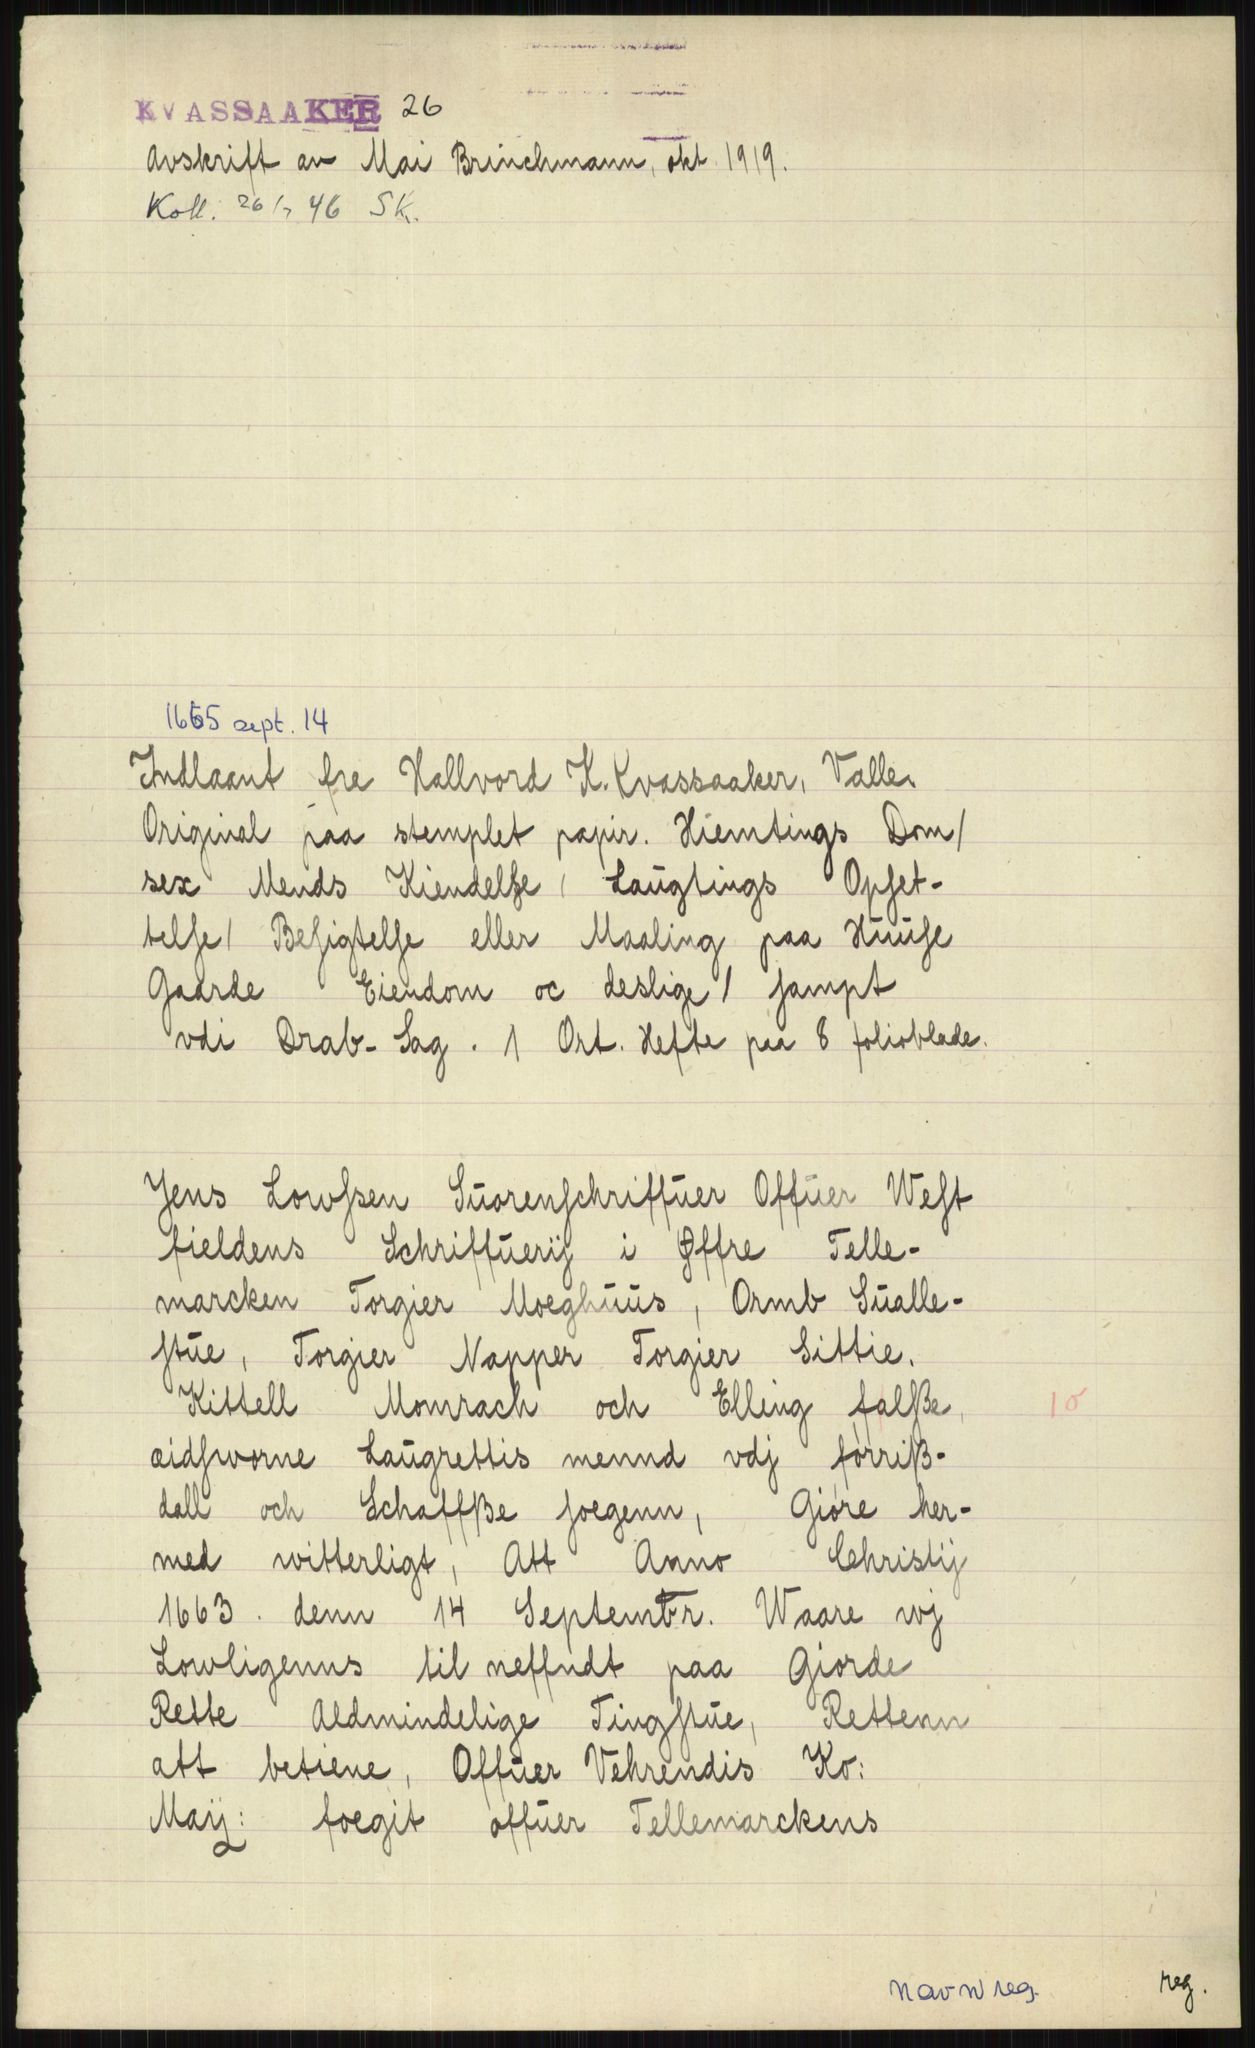 KVASSAAKER 26
Avskrift av Mai Brinchmann, okt. 1919.
Koll. 26/7 46 SK.
1665 sept. 14
Indlaant fra Hallvord K. Kvassaaker, Valle.
Original paa stemplet papir. Hiemtings Dom/
sex Mends Kiendelſe / Laugtings Opſet-
telſe / Beſigtelſe eller Maaling paa Huuſe
Gaarde Eiendom oc deslige / ſampt
vdi Drab-Sag. 1 Ort. Hefte paa 8 folioblade.
Jens Lowſsen Suorenſchriffuer Offuer Weſt
fieldens Schriffuerij i Øffre Telle-
marcken Torgier Moeghuus, Ormb Sualle-
ſtue, Torgier Napper Torgier Sittie.
Kittell Momrach och Elling falße,
eidſworne Laugrettis mennd vdj forriß-
dall och Schaffße ſoegenn, Giøre her-
med witterligt, Att Anno Christij
1663. denn 14 Septembr. Waare wj
Lowligenns til neffndt paa Giorde
Rette Aldmindelige Tingſtue, Rettenn
att betiene, Offuer Vehrendis Ko:
Maij: foegit offuer Tellemarckens
navnreg.
reg.